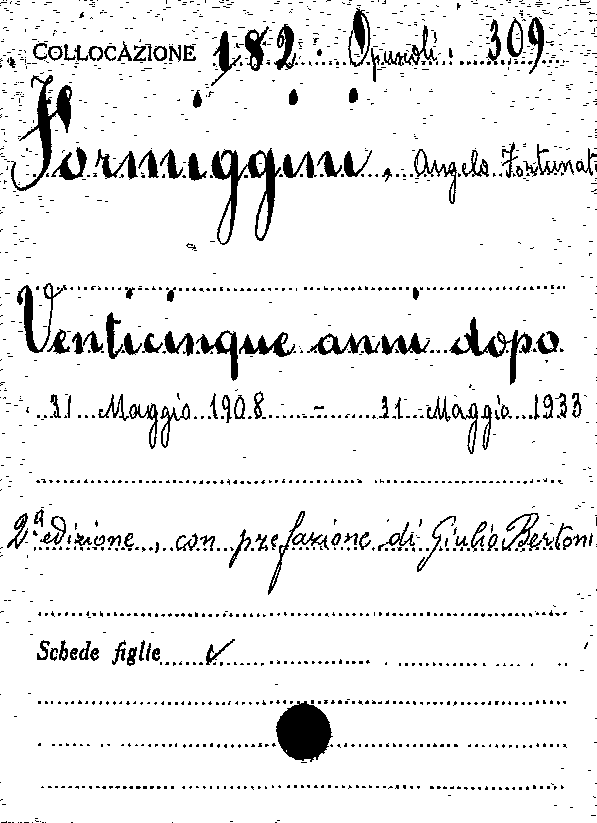 COLLOCAZIONE 182. Opuscoli. 309
Formiggini, Angelo Fortunat
Venticinque anni dopo
31 Maggio 1908 - 31 Maggio 1933
2ª edizione, con prefazione di Giulio Bertoni
Schede figlie ✓